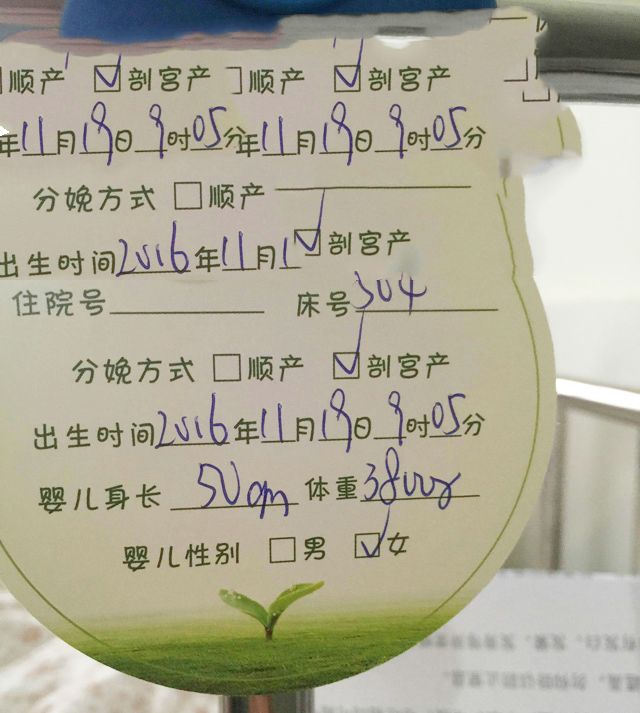 顺产 ☑剖宫产 顺产 ☑剖宫产
年11月19日9时05分年11月19日9时05分
分娩方式 □顺产
出生时间2016年11月1 ☑剖宫产
住院号 床号304
分娩方式 □顺产 ☑剖宫产
出生时间2016年11月19日9时05分
婴儿身长 50cm 体重3800g
婴儿性别 □男 ☑女